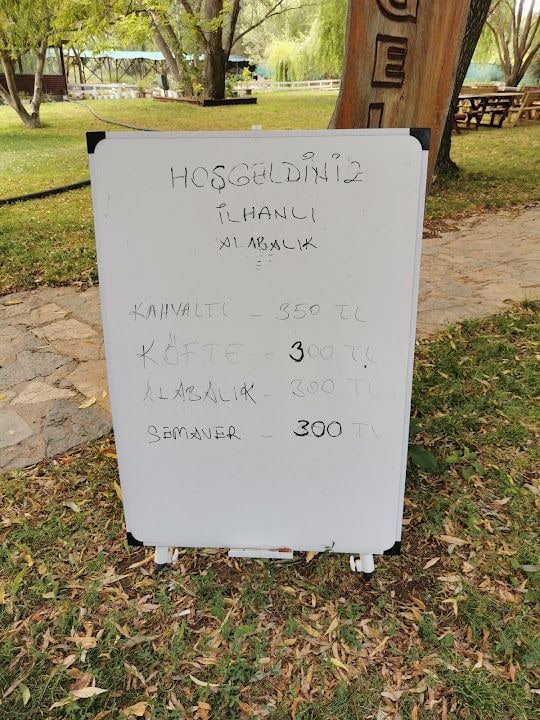 DEL
HOŞGELDİNİZ
İLHANLI
ALABALIK
KAHVALTI - 350 TL
KÖFTE - 300 TL
ALABALIK - 300 TL
SEMAVER - 300 TL